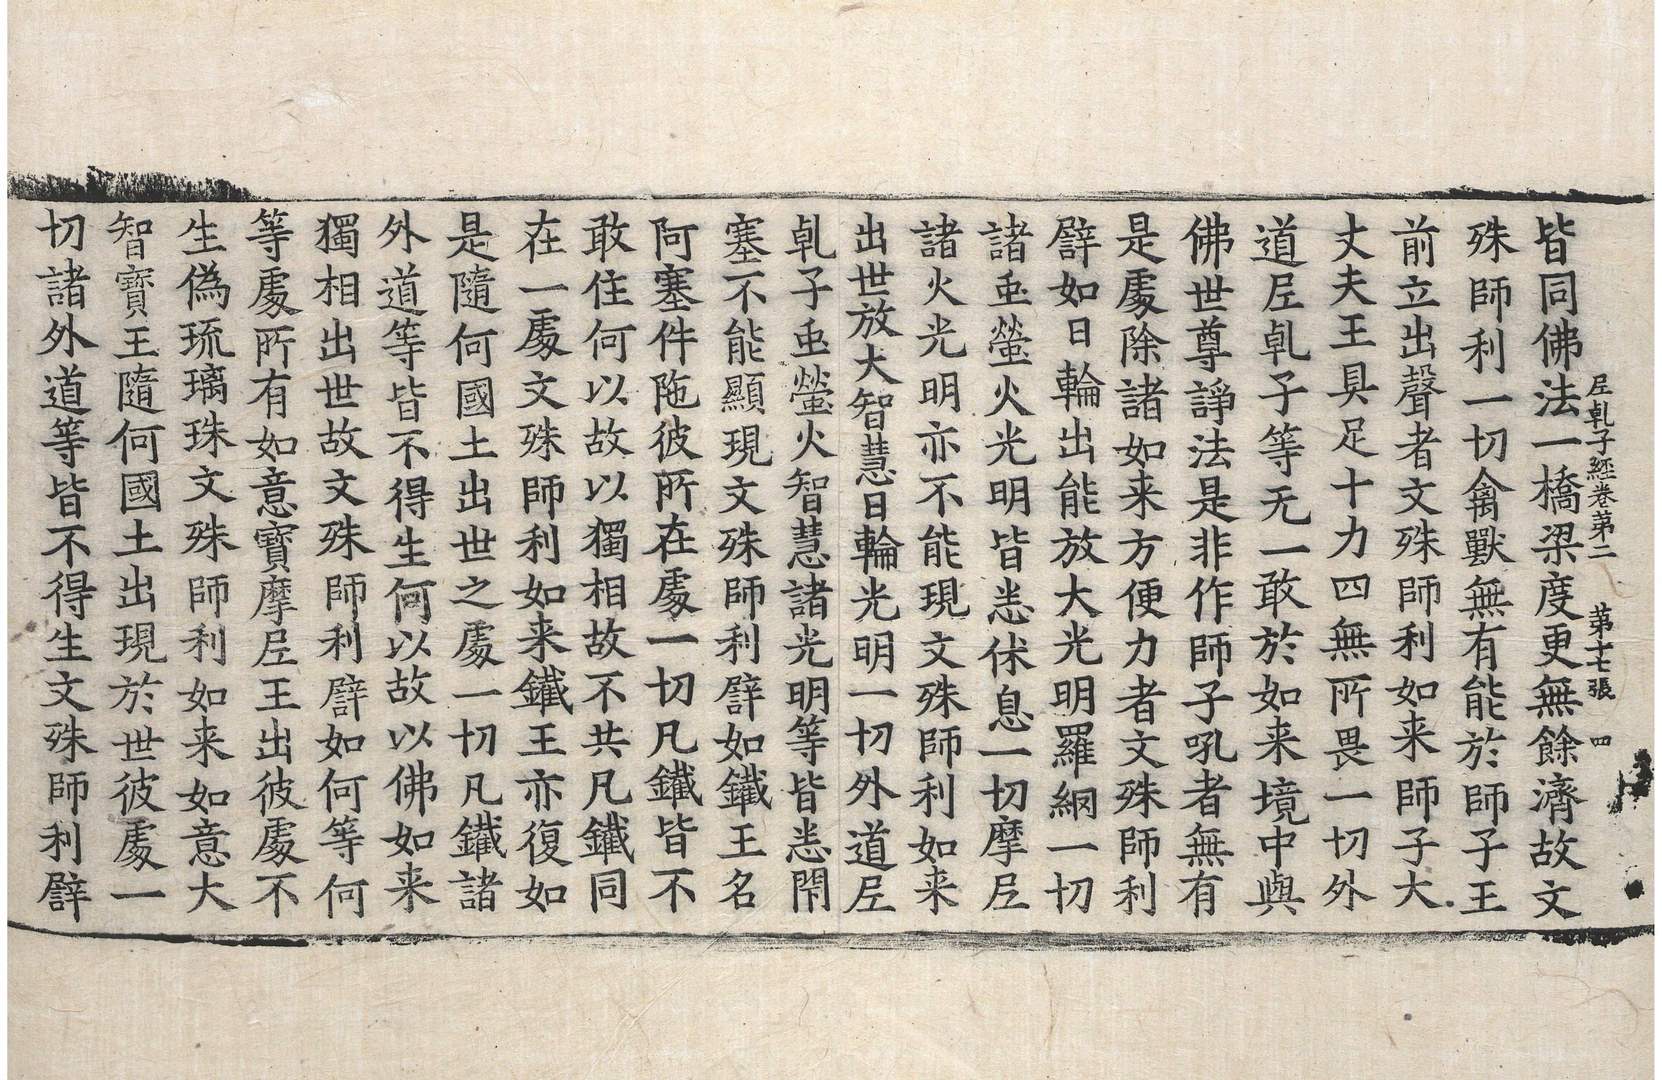 尼乹子經卷第二　第十七張　四
皆同佛法一橋梁度更無餘濟故文
殊師利一切禽獸無有能於師子王
前立出聲者文殊師利如来師子大
丈夫王具足十力四無所畏一切外
道尼乹子等无一敢於如来境中與
佛世尊諍法是非作師子吼者無有
是處除諸如来方便力者文殊師利
譬如日輪出能放大光明羅網一切
諸䖝螢火光明皆悉休息一切摩尼
諸火光明亦不能現文殊師利如来
出世放大智慧日輪光明一切外道尼
乹子䖝螢火智慧諸光明等皆悉闇
塞不能顯現文殊師利譬如鐵王名
阿塞件陁彼所在處一切凡鐵皆不
敢住何以故以獨相故不共凡鐵同
在一處文殊師利如来鐵王亦復如
是隨何國土出世之處一切凡鐵諸
外道等皆不得生何以故以佛如来
獨相出世故文殊師利譬如何等何
等處所有如意寶摩尼王出彼處不
生偽琉璃珠文殊師利如来如意大
智寶王隨何國土出現於世彼處一
切諸外道等皆不得生文殊師利譬